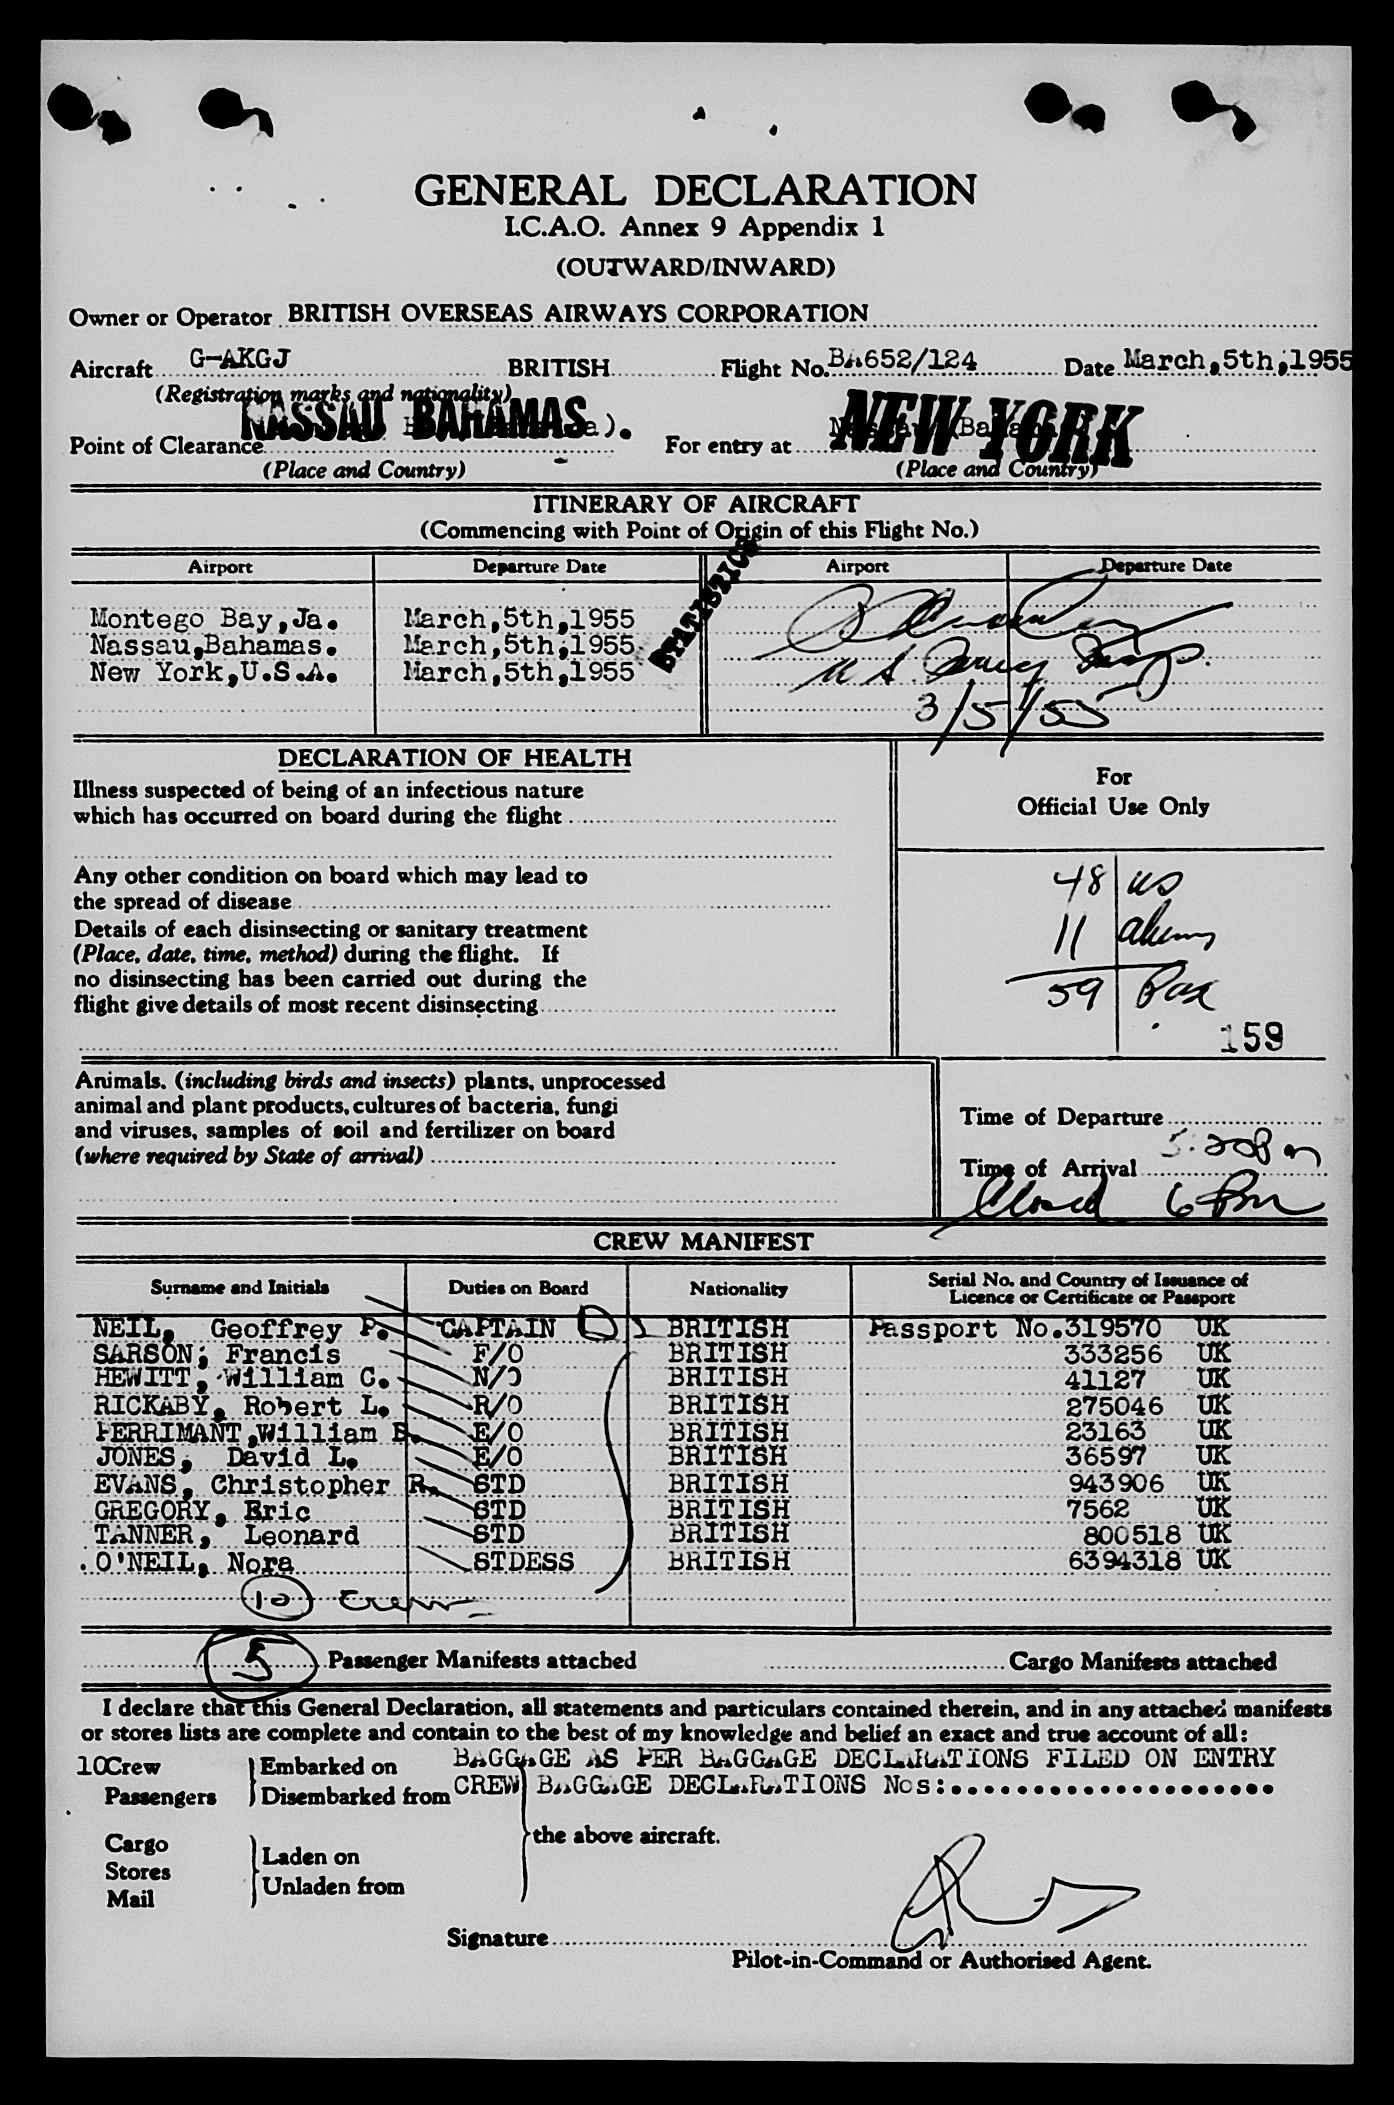 GENERAL DECLARATION
I.C.A.O. Annex 9 Appendix 1
(OUTWARD/INWARD)
Owner or Operator BRITISH OVERSEAS AIRWAYS CORPORATION
Aircraft G-AKGJ BRITISH Flight No. BA652/124 Date March,5th,1955
(Registration marks and nationality)
NASSAU BAHAMAS NEW YORK
Point of Clearance For entry at
(Place and Country) (Place and Country)
ITINERARY OF AIRCRAFT
(Commencing with Point of Origin of this Flight No.)
Airport Departure Date Airport Departure Date
STATISTICS
Montego Bay,Ja. March,5th,1955
Nassau,Bahamas. March,5th,1955
New York,U.S.A. March,5th,1955
3/5/55
DECLARATION OF HEALTH
Illness suspected of being of an infectious nature
which has occurred on board during the flight
For
Official Use Only
Any other condition on board which may lead to
the spread of disease
Details of each disinsecting or sanitary treatment
(Place, date, time, method) during the flight. If
no disinsecting has been carried out during the
flight give details of most recent disinsecting
48 US
11 aliens
59 Pax
159
Animals, (including birds and insects) plants, unprocessed
animal and plant products, cultures of bacteria, fungi
and viruses, samples of soil and fertilizer on board
(where required by State of arrival)
Time of Departure
Time of Arrival 5:20 Pm
Closed 6 Pm
CREW MANIFEST
Surname and Initials Duties on Board Nationality Serial No. and Country of Issuance of
Licence or Certificate or Passport
NEIL, Geoffrey P. CAPTAIN BRITISH Passport No.319570 UK
SARSON, Francis F/O BRITISH 333256 UK
HEWITT, William C. N/O BRITISH 41127 UK
RICKABY, Robert L. R/O BRITISH 275046 UK
PERRIMANT,William E/O BRITISH 23163 UK
JONES, David L. E/O BRITISH 36597 UK
EVANS, Christopher R. STD BRITISH 943906 UK
GREGORY, Eric STD BRITISH 7562 UK
TANNER, Leonard STD BRITISH 800518 UK
O'NEIL, Nora STDESS BRITISH 6394318 UK
10 Crew
5 Passenger Manifests attached Cargo Manifests attached
I declare that this General Declaration, all statements and particulars contained therein, and in any attached manifests
or stores lists are complete and contain to the best of my knowledge and belief an exact and true account of all:
BAGGAGE AS PER BAGGAGE DECLARATIONS FILED ON ENTRY
10 Crew Embarked on
Passengers Disembarked from CREW BAGGAGE DECLARATIONS Nos:....................
the above aircraft.
Cargo
Stores Laden on
Mail Unladen from
Signature
Pilot-in-Command or Authorised Agent.